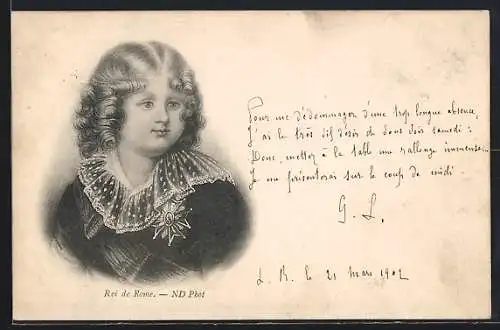 Pour me dédommager d'une trop longue absence,
J'ai le très vif désir de vous voir samedi :
Donc, mettez à la table une rallonge immense...
Je me présenterai sur le coup de midi.
G. L.
L. R. le 21 Mars 1902
Roi de Rome. — ND Phot